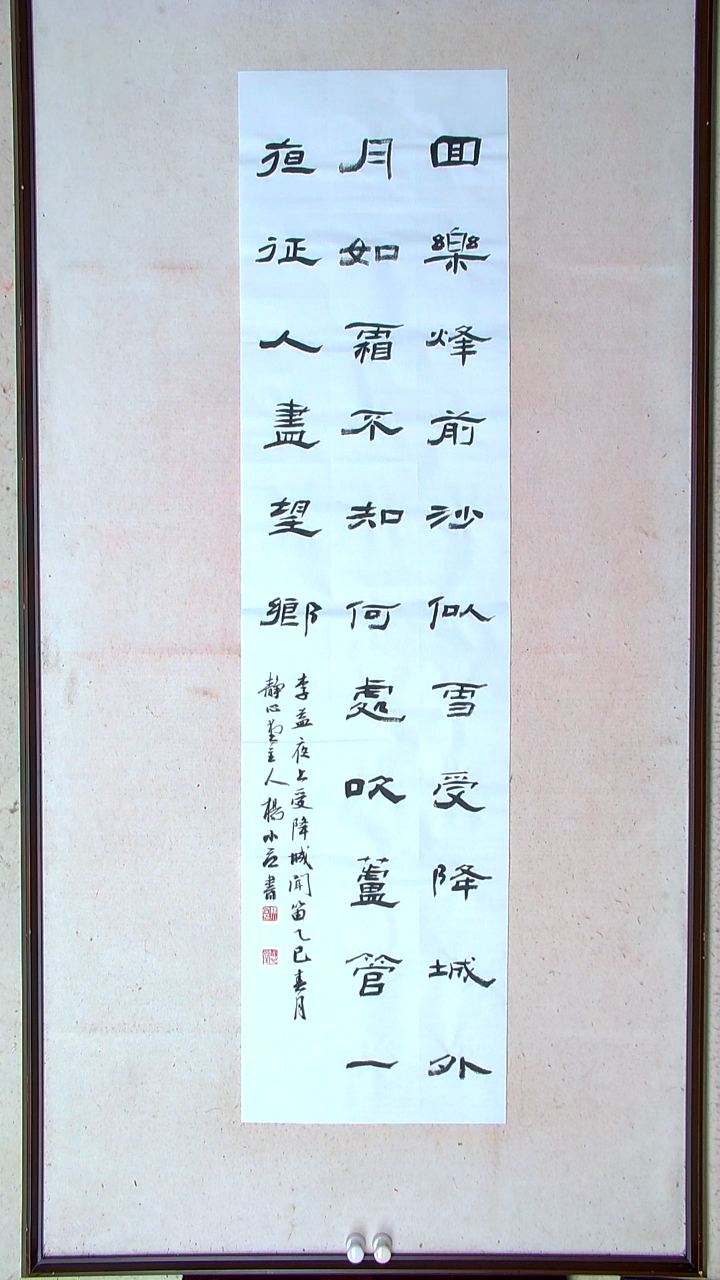 回樂烽前沙似雪受降城外
月如霜不知何處吹蘆管一
夜征人盡望鄉
李益夜上受降城聞笛乙巳春月
靜心堂主人楊小京書